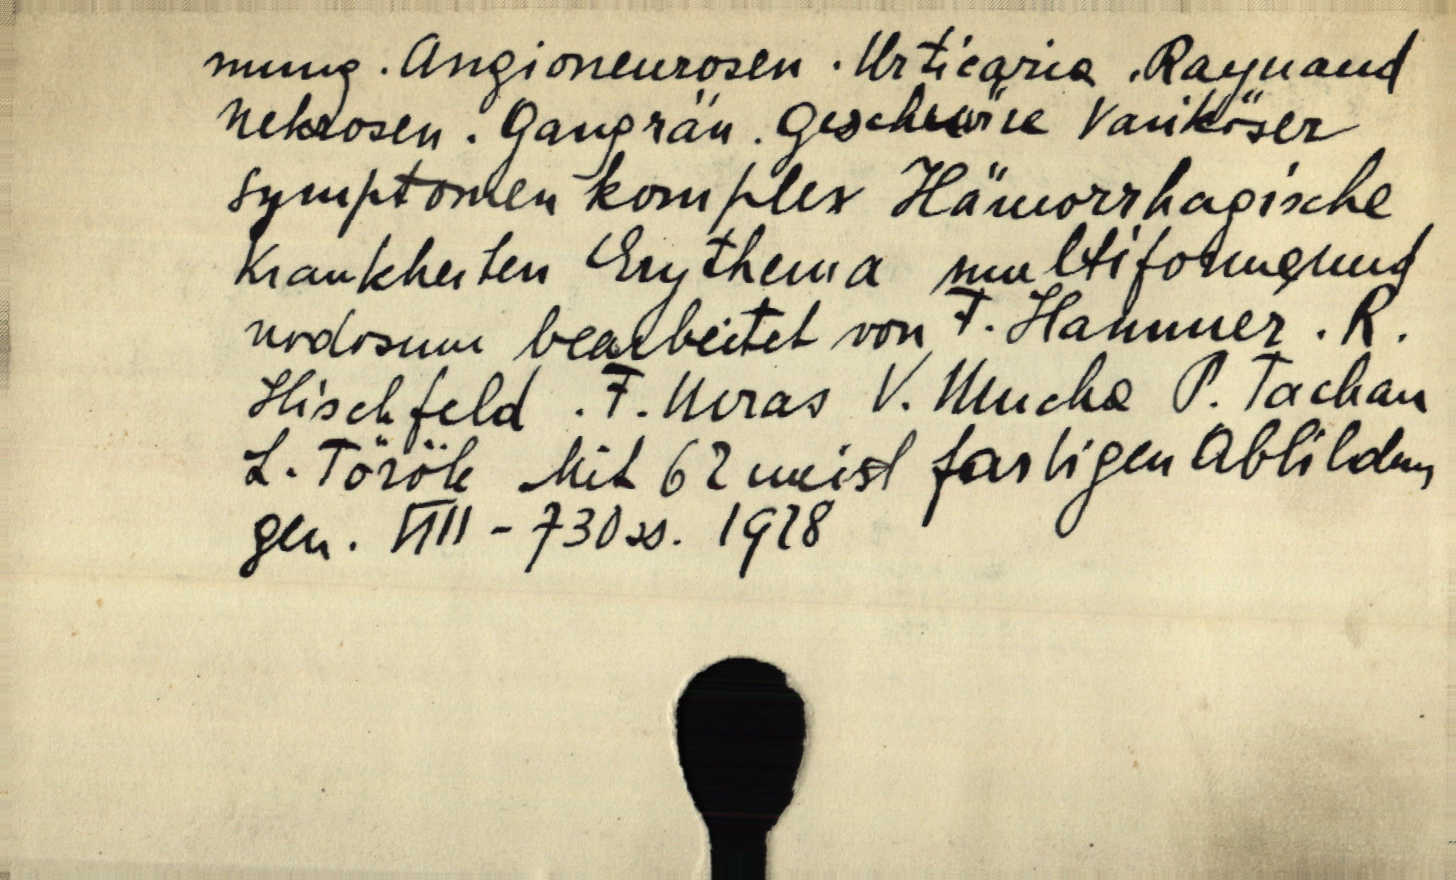 mung. Angioneurosen. Urticaria. Raynaud
Nekrosen. Gangrän. Geschwüre Variköser
symptomenkomplex Hämorrhagische
Krankheiten Erythema multiforme und
nodosum bearbeitet von F. Hammer. R.
Hischfeld. F. V. Mucha P. Tachau
L. Török Mit 62 meist farbigen Abbildun
gen. VIII - 730 ss. 1928